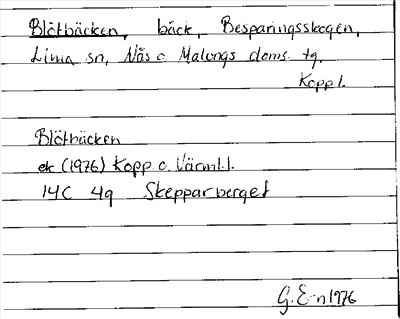 Blötbäcken, bäck, Besparingsskogen,
Lima sn, Nås o. Malungs doms. tg,
Kopp l.
Blötbäcken
ek (1976) Kopp o. Värml. l.
14C 4g Skepparberget
G. E-n 1976